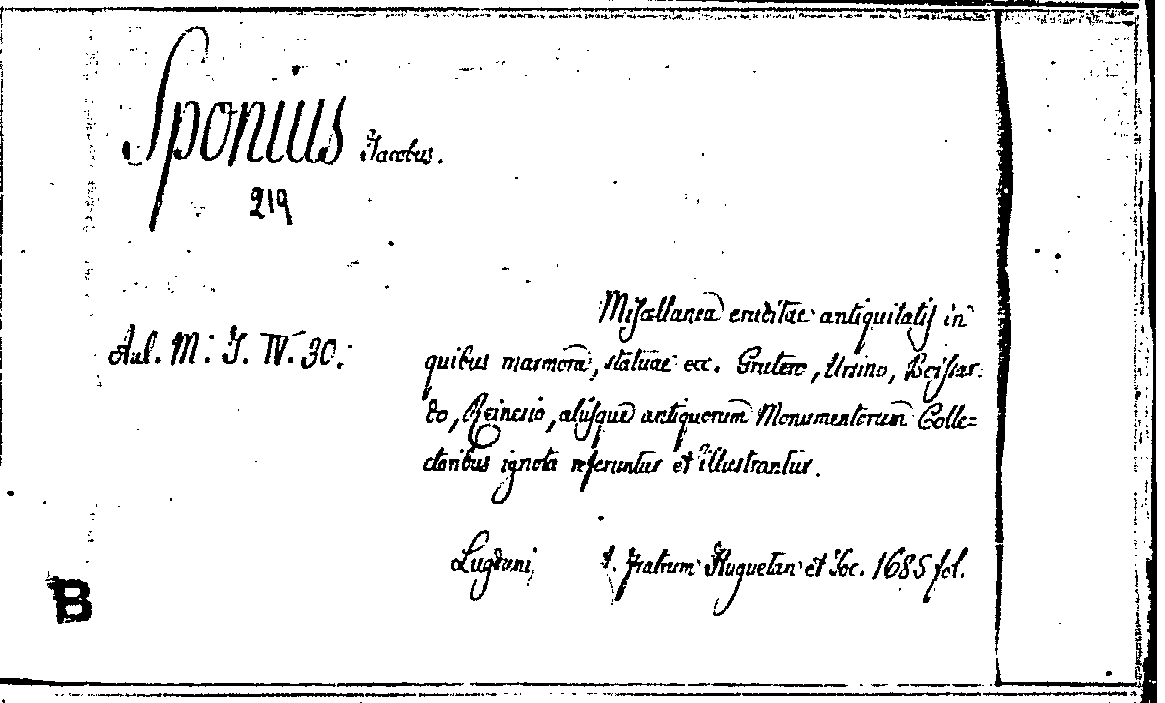 Sponius Jacobus.
219
Miscellanea eruditae antiquitatis in
Aul. M: I. IV. 30.
quibus marmora, statuae ecc. Grutero, Ursino, Boissar-
do, Reinesio, aliisque antiquorum Monumentorum Colle=
ctoribus ignota referuntur et illustrantur.
Lugduni, t. Fratrum Huguetan et Soc. 1685 fol.
B